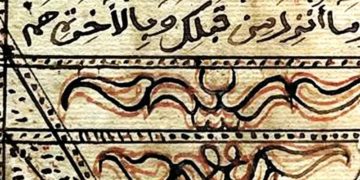 وما أنزل من قبلك وبالآخرة هم